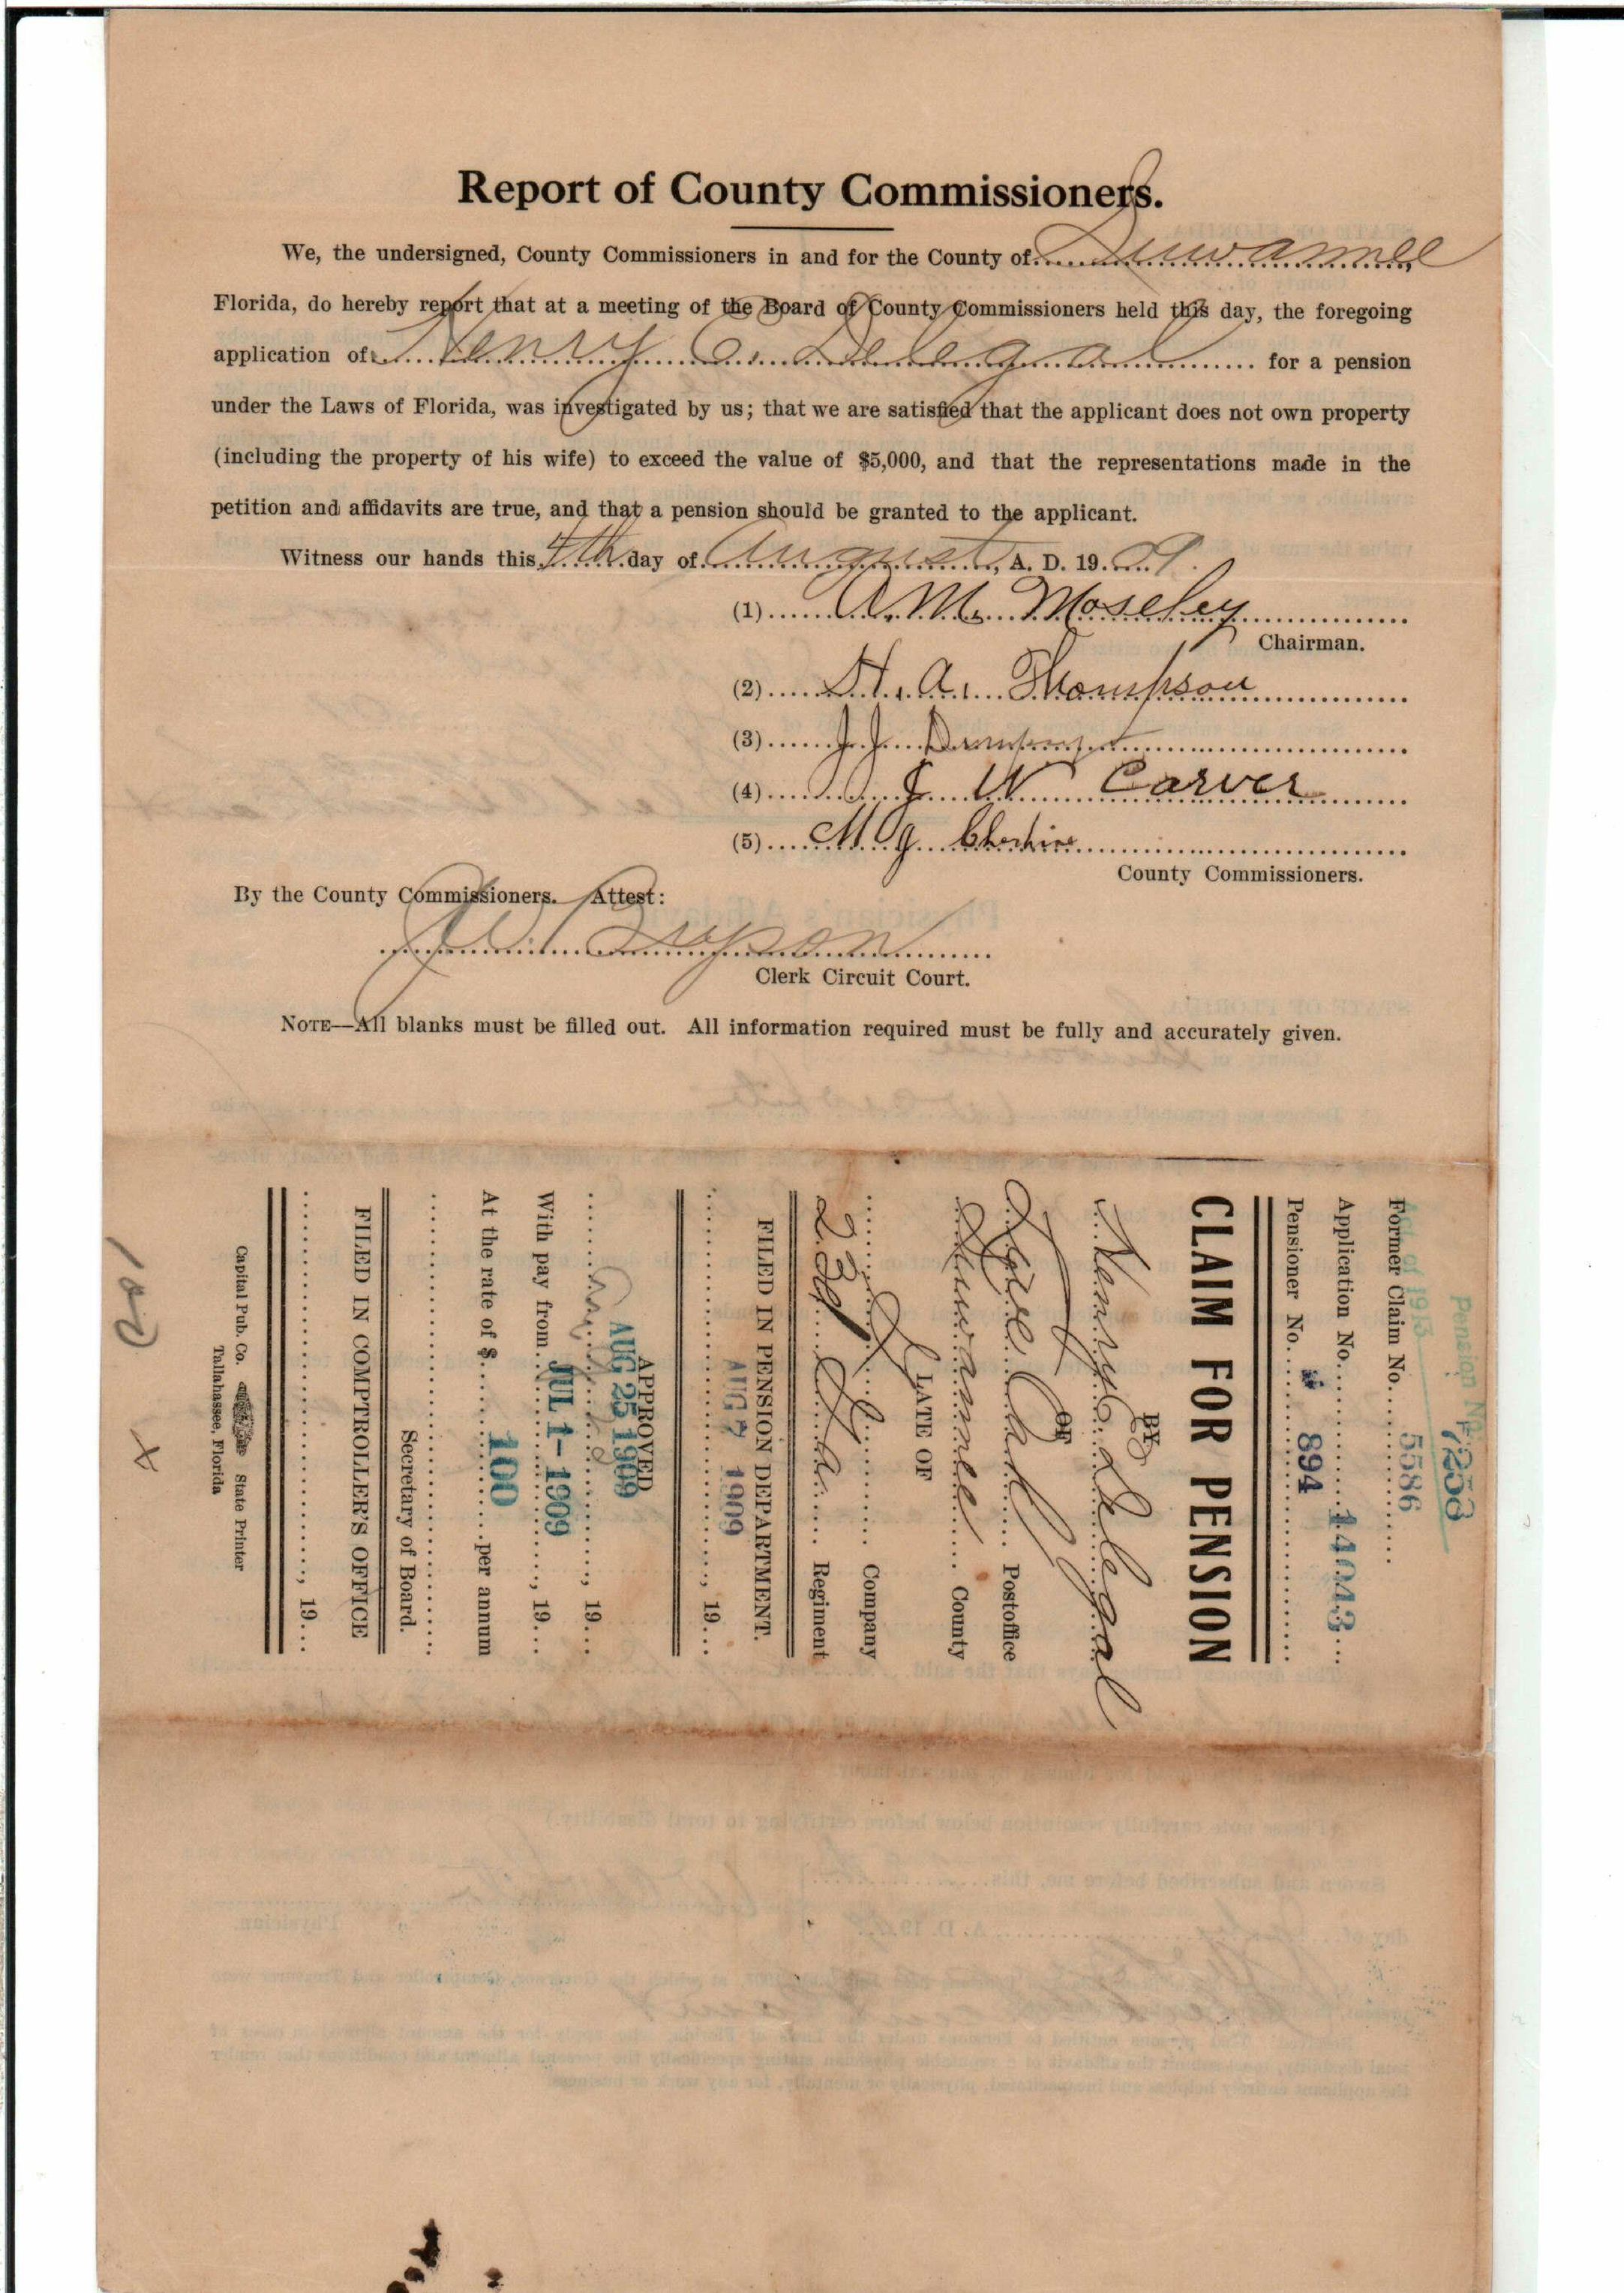 Report of County Commissioners.
We, the undersigned, County Commissioners in and for the County of Suwannee
Florida, do hereby report that at a meeting of the Board of County Commissioners held this day, the foregoing
application of Henry C. Delegal for a pension
under the Laws of Florida, was investigated by us; that we are satisfied that the applicant does not own property
(including the property of his wife) to exceed the value of $5,000, and that the representations made in the
petition and affidavits are true, and that a pension should be granted to the applicant.
Witness our hands this 4th day of August, A. D. 19 09.
(1) A. M. Moseley
Chairman.
(2) H. A. Thompson
(3) J. J.
(4) J W Carver
(5) M g Cheshire
County Commissioners.
By the County Commissioners. Attest:
J. W. Bryson
Clerk Circuit Court.
NOTE—All blanks must be filled out. All information required must be fully and accurately given.
Pension No. 7253
Act of 1913
Former Claim No. 5586
Application No. 14043
Pensioner No. 894
CLAIM FOR PENSION
BY
Henry C. Delegal
OF
Live Oak Postoffice
Suwannee County
LATE OF
Company
23d Regiment
FILED IN PENSION DEPARTMENT.
AUG 7 1909, 19
APPROVED
AUG 25 1909
Aug, 19
With pay from JUL 1- 1909, 19
At the rate of $ 100 per annum
Secretary of Board.
FILED IN COMPTROLLER'S OFFICE
, 19
Capital Pub. Co. State Printer
Tallahassee, Florida